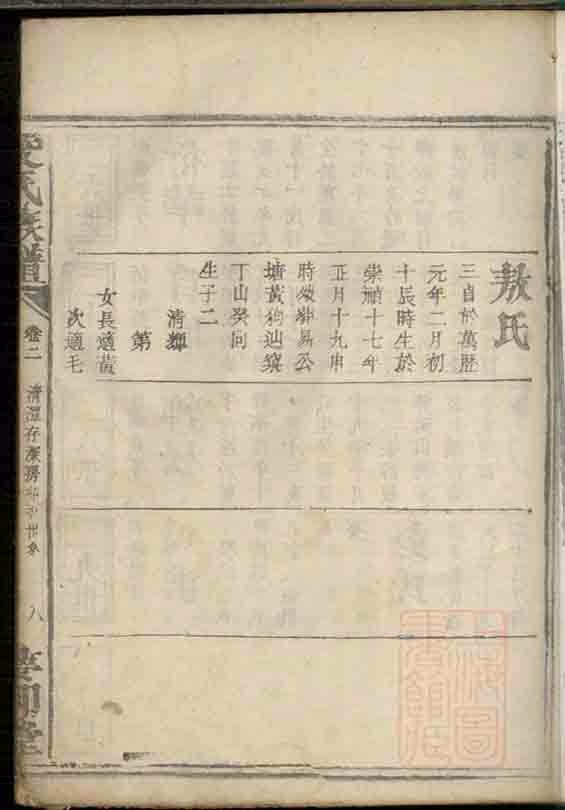 敖氏
三自於萬歷
元年二月初
十辰時生於
崇禎十七年
正月十九申
時歿葬易公
塘黃狗㘭窠
丁山癸向
生子二
清輝
第
女長適黃
次適毛
氏族譜
卷二
清潭存
房
八
上海圖書館藏